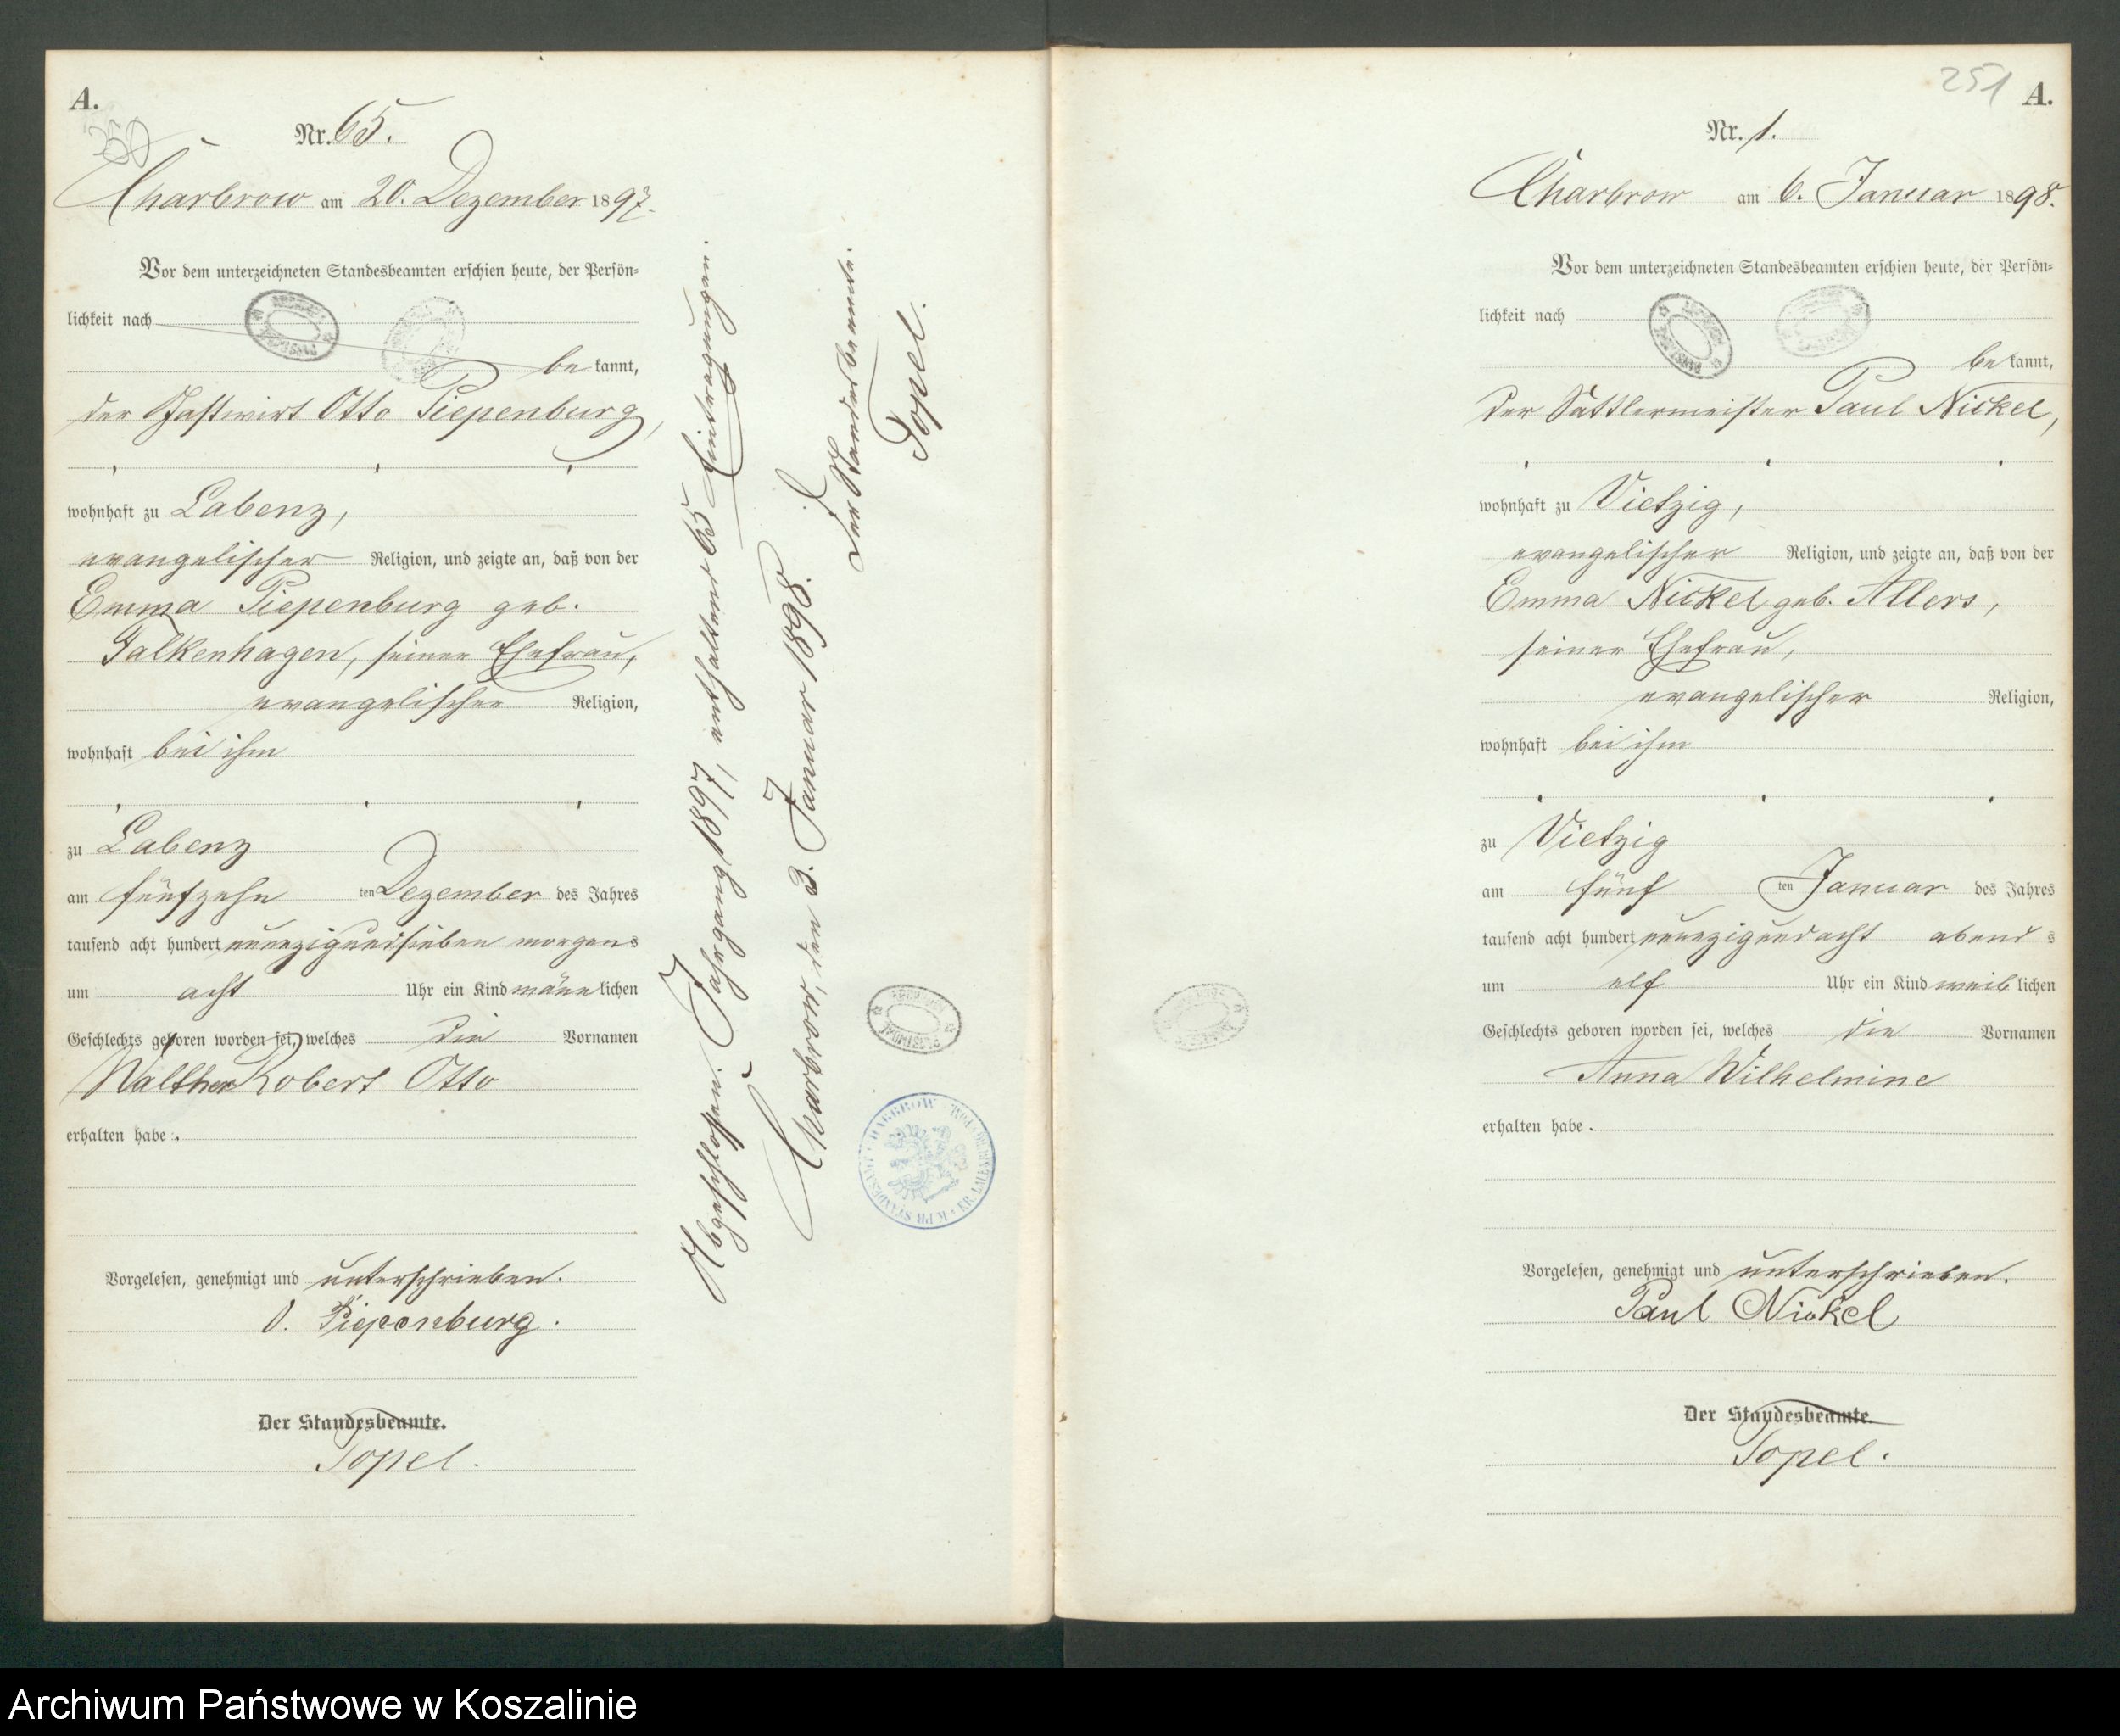 A.
350
Nr. 65.
Charbrow am 20. Dezember 1897.
Vor dem unterzeichneten Standesbeamten erschien heute, der Persön-
lichkeit nach
be kannt,
der Gastwirt Otto Piepenburg,
wohnhaft zu Labenz,
evangelischer Religion, und zeigte an, daß von der
Emma Piepenburg geb.
Falkenhagen, seiner Ehefrau,
evangelischer Religion,
wohnhaft bei ihm
zu Labenz
am fünfzehn ten Dezember des Jahres
tausend acht hundert neunzigundsieben morgens
um acht Uhr ein Kind männlichen
Geschlechts geboren worden sei, welches die Vornamen
Walther Robert Otto
erhalten habe .
Vorgelesen, genehmigt und unterschrieben.
O. Piepenburg.
Der Standesbeamte.
Topel.
Abgeschlossen. Jahrgang 1897, enthaltend 65 Eintragungen.
Charbrow, den 3. Januar 1898.
Der Standesbeamte.
Topel.
251
A.
Nr. 1.
Charbrow am 6. Januar 1898.
Vor dem unterzeichneten Standesbeamten erschien heute, der Persön-
lichkeit nach
be kannt,
der Sattlermeister Paul Nickel,
wohnhaft zu Vietzig,
evangelischer Religion, und zeigte an, daß von der
Emma Nickel geb. Allers,
seiner Ehefrau,
evangelischer Religion,
wohnhaft bei ihm
zu Vietzig
am fünf ten Januar des Jahres
tausend acht hundert neunzigundacht abend s
um elf Uhr ein Kind weib lichen
Geschlechts geboren worden sei, welches die Vornamen
Anna Wilhelmine
erhalten habe .
Vorgelesen, genehmigt und unterschrieben.
Paul Nickel
Der Standesbeamte.
Topel.
Archiwum Państwowe w Koszalinie